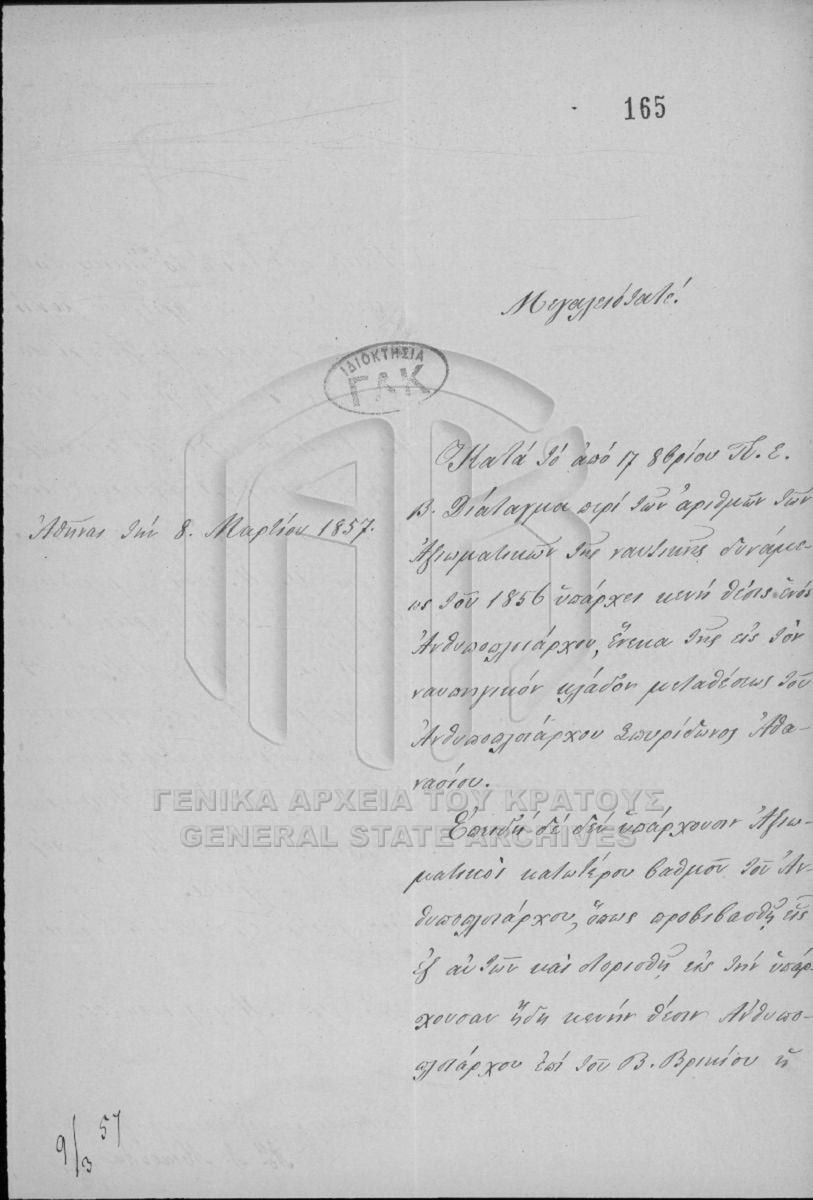 165
Μεγαλειότατε!
ΙΔΙΟΚΤΗΣΙΑ
ΓΑΚ
Ἀθῆναι τὴν 8. Μαρτίου 1857.
Κατὰ τὸ ἀπὸ 17 8βρίου Π. Ε.
Β. Διάταγμα περὶ τῶν ἀριθμῶν τῶν
Ἀξιωματικῶν τῆς ναυτικῆς δυνάμε-
ως τοῦ 1856 ὑπάρχει κενὴ θέσις ἑνὸς
Ἀνθυποπλοιάρχου, ἕνεκα τῆς εἰς τὸν
ναυπηγικὸν κλάδον μεταθέσεως τοῦ
Ἀνθυποπλοιάρχου Σπυρίδωνος Ἀθα-
νασίου.
ΓΕΝΙΚΑ ΑΡΧΕΙΑ ΤΟΥ ΚΡΑΤΟΥΣ
GENERAL STATE ARCHIVES
Ἐπειδὴ δὲ δὲν ὑπάρχουσιν Ἀξιω-
ματικοὶ κατωτέρου βαθμοῦ τοῦ Ἀν-
θυποπλοιάρχου, ὅπως προβιβασθῇ εἷς
ἐξ αὐτῶν καὶ διορισθῇ εἰς τὴν ὑπάρ-
χουσαν ἤδη κενὴν θέσιν Ἀνθυπο-
πλοιάρχου ἐπὶ τοῦ Β. Βρικίου ἡ
9/3 57